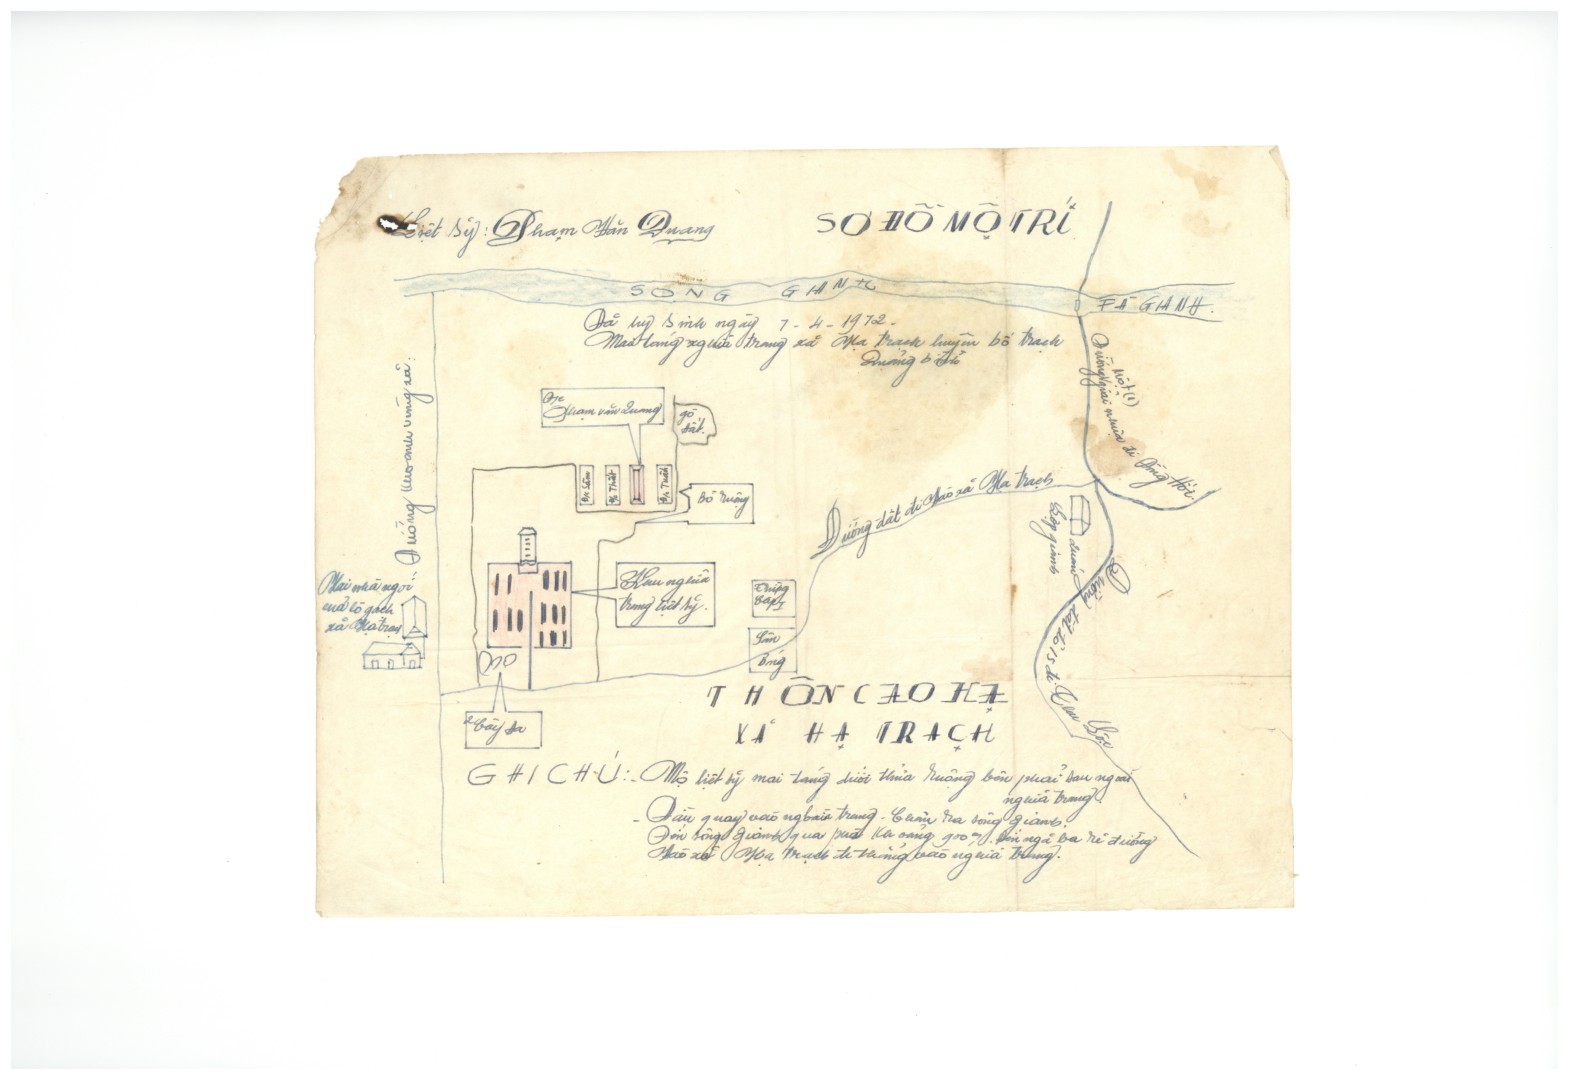 Liệt sỹ: Phạm Văn Quang
SƠ ĐỒ MỘ TRÍ
SÔNG GIANH
FÀ GIANH.
Đã hy sinh ngày 7-4-1972.
Mai táng nghĩa trang xã Hạ trạch huyện bố trạch
Quảng bình
Đường liên vùng xã.
Đường số một (1)
Đường giải nhựa đi Đồng Hới
Đ/c
Phạm văn Quang
gò
đất.
Đ/c Thất
Đ/c Tuất
Bờ ruộng
Đường đất đi vào xã Hạ trạch
Đường đất
Khu nghĩa
trang liệt sỹ.
Hai nhà ngói
của lò gạch
xã Hạ trạch
Cây đa
THÔN CAO HẠ
XÃ HẠ TRẠCH
GHI CHÚ:- Mộ liệt sỹ mai táng dưới thửa ruộng bên phải sau ngoài
nghĩa trang.
- Đầu quay vào nghĩa trang. Chân ra sông gianh.
Đến sông gianh qua phà khoảng 900m, đến ngã ba rẽ đường
vào xã Hạ trạch đi thẳng vào nghĩa trang.